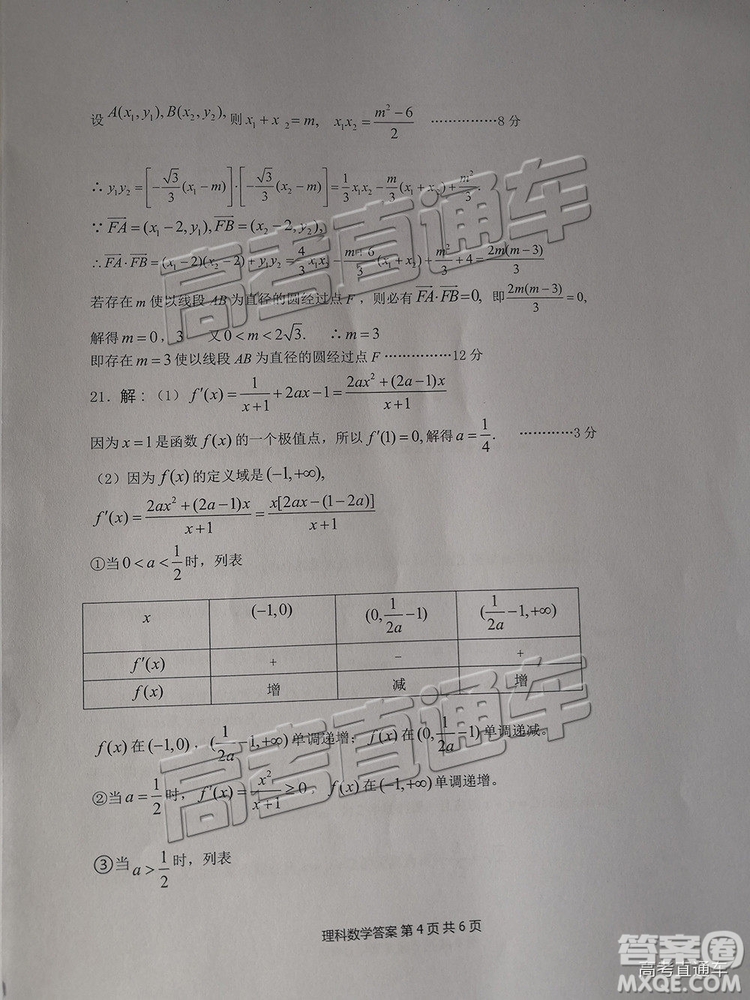 设 A(x₁, y₁), B(x₂, y₂), 则 x₁ + x ₂ = m, x₁x₂ = (m² − 6)/2 ……………8 分
∴ y₁y₂ = [−(√3/3)(x₁ − m)]·[−(√3/3)(x₂ − m)] = (1/3)x₁x₂ − (m/3)(x₁ + x₂) + m²/3.
∵ FA = (x₁ − 2, y₁), FB = (x₂ − 2, y₂),
∴ FA·FB = (x₁ − 2)(x₂ − 2) + y₁y₂ = (4/3)x₁x₂ − ((m+6)/3)(x₁ + x₂) + m²/3 + 4 = 2m(m−3)/3
若存在 m 使以线段 AB 为直径的圆经过点 F , 则必有 FA·FB = 0, 即 2m(m−3)/3 = 0,
解得 m = 0 , 3 又 0 < m < 2√3. ∴ m = 3
即存在 m = 3 使以线段 AB 为直径的圆经过点 F ……………12 分
21．解：(1) f′(x) = 1/(x+1) + 2ax − 1 = (2ax² + (2a−1)x)/(x+1)
因为 x = 1 是函数 f(x) 的一个极值点，所以 f′(1) = 0, 解得 a = 1/4. …………3 分
（2）因为 f(x) 的定义域是 (−1, +∞),
f′(x) = (2ax² + (2a−1)x)/(x+1) = x[2ax − (1−2a)]/(x+1)
①当 0 < a < 1/2 时，列表
x (−1, 0) (0, 1/2a −1) (1/2a −1, +∞)
f′(x) + − +
f(x) 增 减 增
f(x) 在 (−1, 0) , (1/2a −1, +∞) 单调递增；f(x) 在 (0, 1/2a −1) 单调递减。
②当 a = 1/2 时，f′(x) = x²/(x+1) ≥ 0 , f(x) 在 (−1, +∞) 单调递增。
③当 a > 1/2 时，列表
理科数学答案 第 4 页 共 6 页
高考直通车
高考直通车
答案卷
高考直通车
MXQE.COM